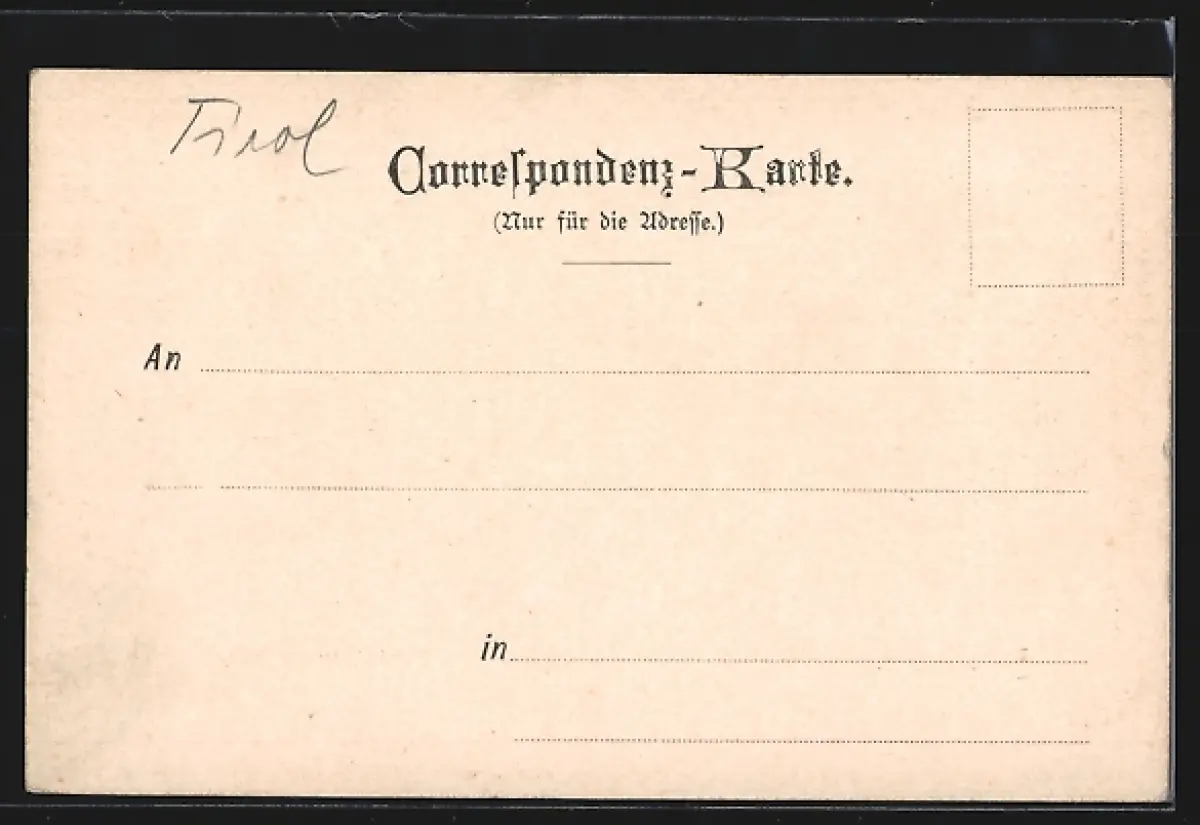 Tirol
Correspondenz-Karte.
(Nur für die Adresse.)
An
in